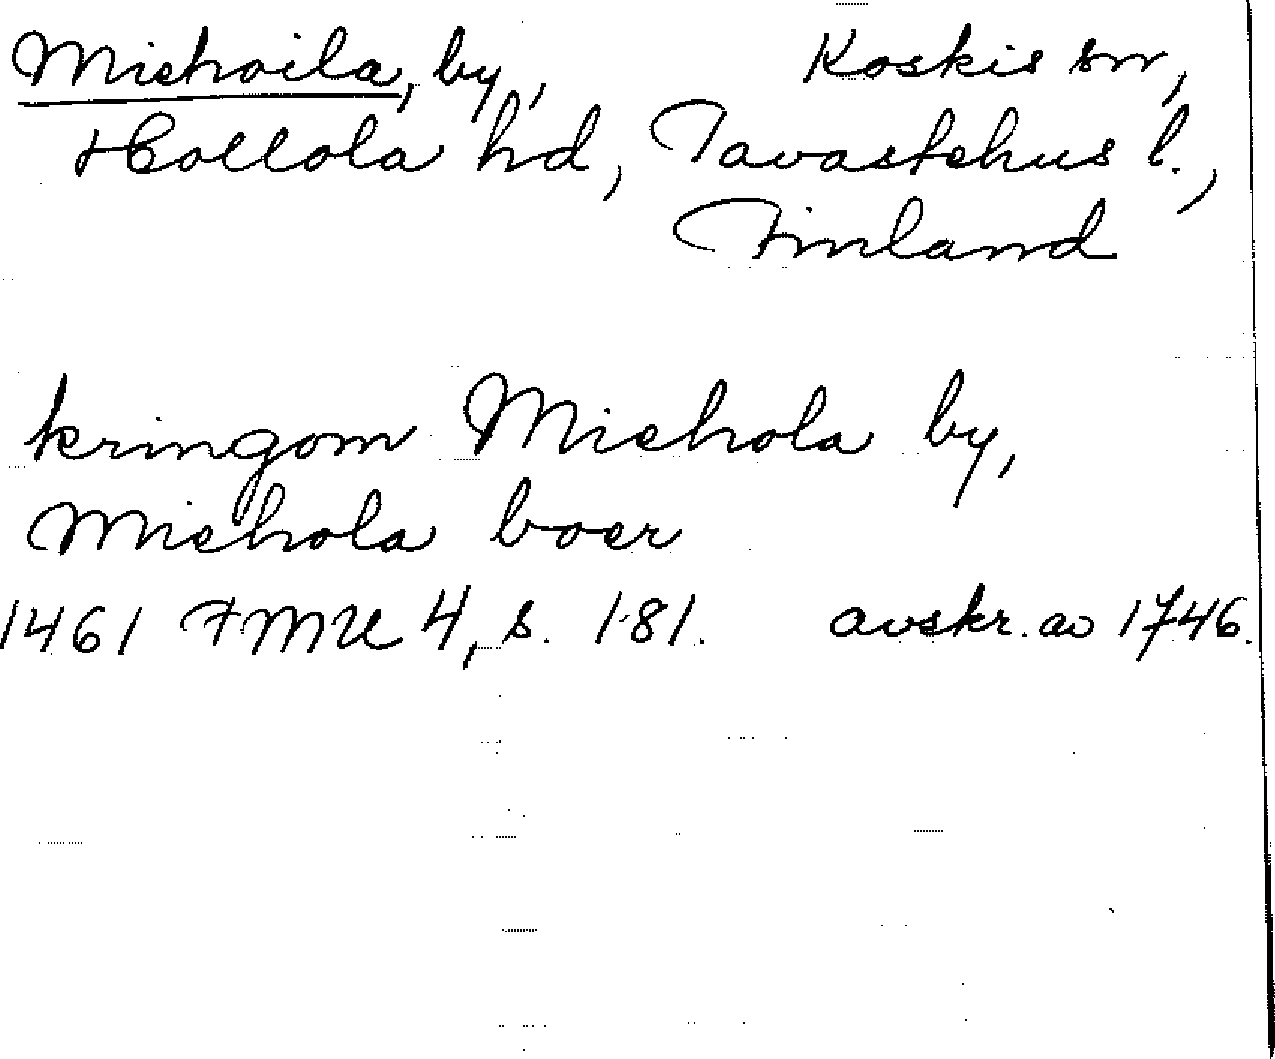 Michoila, by, Koskis sn,
Hollola hd, Tavastehus l.,
Finland
kringom Michola by,
Michola boer
1461 FMU 4, s. 181. avskr. av 1746.